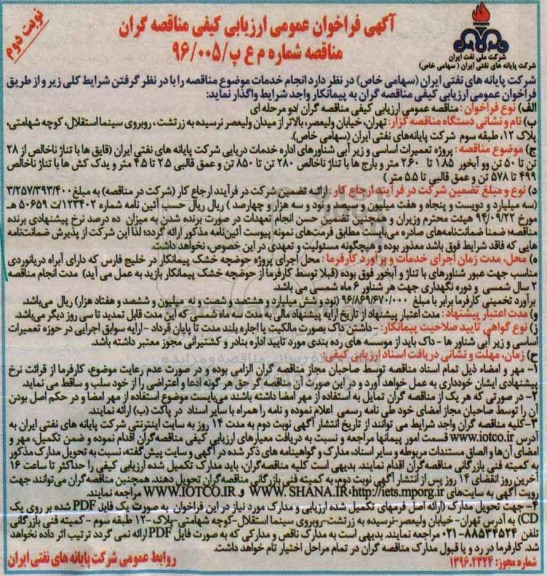 نوبت دوم
آگهی فراخوان عمومی ارزیابی کیفی مناقصه گران
مناقصه شماره م ع پ/۹۶/۰۰۵
شرکت ملی نفت ایران
شرکت پایانه های نفتی ایران (سهامی خاص)
شرکت پایانه های نفتی ایران (سهامی خاص) در نظر دارد انجام خدمات موضوع مناقصه را با در نظر گرفتن شرایط کلی زیر و از طریق
فراخوان عمومی ارزیابی کیفی مناقصه گران به پیمانکار واجد شرایط واگذار نماید:
الف) نوع فراخوان: مناقصه عمومی ارزیابی کیفی مناقصه گران /دو مرحله ای
ب) نام و نشانی دستگاه مناقصه گزار: تهران، خیابان ولیعصر، بالاتر از میدان ولیعصر نرسیده به زرتشت، روبروی سینما استقلال، کوچه شهامتی،
پلاک ۱۲، طبقه سوم شرکت پایانه‌های نفتی ایران (سهامی خاص).
ج) موضوع مناقصه: پروژه تعمیرات اساسی و زیر آبی شناورهای اداره خدمات دریایی شرکت پایانه های نفتی ایران (قایق ها با تناژ ناخالص از ۲۸
تن تا ۵۰ تن و آبخور ۱.۸۵ تا ۲.۶۰ متر و بارج ها با تناژ ناخالص ۲۸۰ تن تا ۸۵۰ تن و عمق قالبی ۲.۵ تا ۴.۵ متر و یدک کش ها با تناژ ناخالص
۴۹۹ تا ۵۷۸ تن و عمق قالبی تا ۵.۵ متر)
د) نوع و مبلغ تضمین شرکت در فرآیند ارجاع کار: ارائه تضمین شرکت در فرآیند ارجاع کار (شرکت در مناقصه) به مبلغ ۳/۲۵۷/۳۹۳/۴۰۰
(سه میلیارد و دویست و پنجاه و هفت میلیون و سیصد و نود و سه هزار و چهارصد) ریال حسب آئین نامه شماره ۱۲۳۴۰۲/ت ۵۰۶۵۹ هـ
مورخ ۹۴/۰۹/۲۲ هیئت محترم وزیران و همچنین تضمین حسن انجام تعهدات در صورت برنده شدن به میزان ده درصد نرخ پیشنهادی برنده
مناقصه؛ ضمنا ضمانت‌نامه‌های صادره می‌بایست مطابق فرمت‌های نمونه پیوست آئین‌نامه مذکور ارائه گردد؛ لذا این شرکت از پذیرش ضمانت‌نامه
هایی که فاقد شرایط فوق باشد معذور بوده و هیچگونه مسئولیت و تعهدی در این خصوص، نخواهد داشت.
ه) محل، مدت زمان اجرای خدمات و برآورد کارفرما: محل اجرای پروژه حوضچه خشک پیمانکار در خلیج فارس که دارای آبراه دریانوردی
مناسب جهت عبور شناورهای با تناژ و آبخور فوق بوده (قبلا توسط کارفرما از حوضچه خشک پیمانکار بازید به عمل می آید) مدت انجام مناقصه
۲ سال شمسی و دوره نگهداری جهت هر شناور ۶ ماه شمسی می باشد.
برآورد تخمینی کارفرما برابر با مبلغ ۹۶/۸۶۹/۶۷۰/۰۰۰ (نود و شش میلیارد و هشتصد و شصت و نه میلیون و ششصد و هفتاد هزار) ریال می‌باشد.
و) مدت اعتبار پیشنهاد: مدت اعتبار پیشنهاد از تاریخ ارایه پیشنهاد مالی به مدت سه ماه شمسی است که این مدت قابل تمدید تا سی روز دیگر می‌باشد.
ز) نوع گواهی تایید صلاحیت پیمانکار: - داشتن داک بصورت مالکیت یا اجاره بلند مدت تا پایان قرداد - ارایه سوابق اجرایی در حوزه تعمیرات
اساسی و زیر آبی شناور ها - داک باید از موسسه های رده بندی مورد تایید اداره بنادر و کشتیرانی مجوز معتبر داشته باشد.
ح) زمان، مهلت و نشانی دریافت اسناد ارزیابی کیفی:
۱- مهر و امضاء ذیل تمام اسناد مناقصه توسط صاحبان مجاز مناقصه گران الزامی بوده و در صورت عدم رعایت موضوع، کارفرما از قرائت نرخ
پیشنهادی ایشان خودداری به عمل خواهد آورد و در این صورت آن مناقصه گر حق هر گونه ادعا و اعتراضی را از خود سلب و ساقط می نماید.
۲- در صورتی که هر یک از مناقصه گران تمایل به استفاده از مهر امضا داشته باشند می‌بایست موضوع استفاده از مهر امضا و در حکم اصل بودن
آن را توسط صاحبان مجاز امضای خود طی نامه رسمی اعلام نموده و نامه را همراه با سایر اسناد در پاکت (ب) ارائه نمایند.
۳- کلیه مناقصه گران واجد شرایط می توانند از تاریخ انتشار آگهی نوبت دوم به مدت ۱۴ روز به سایت اینترنتی شرکت پایانه های نفتی ایران به
آدرس www.iotco.ir قسمت امور پیمانها مراجعه و نسبت به دریافت معیارهای ارزیابی کیفی مناقصه گران اقدام نموده و ضمن تکمیل، مهر و
امضای آن‌ها و الصاق مستندات مربوطه و سایر اسناد، مدارک و گواهینامه های ذکر شده در آگهی و سایت پیش گفته، نسبت به تحویل مدارک مذکور
به کمیته فنی بازرگانی مناقصه گران اقدام نمایند. بدیهی است کلیه مناقصه‌گران، باید مدارک تکمیل شده ارزیابی کیفی را حداکثر تا ساعت ۱۶
آخرین روز انقضای ۱۴ روز پس از انتشار آگهی نوبت دوم، به کمیته فنی بازرگانی مناقصه‌گران تحویل دهند. همچنین مناقصه‌گران می‌توانند جهت
رویت آگهی به سایت‌های http://iets.mporg.ir، WWW.SHANA.IR و WWW.IOTCO.IR مراجعه نمایند.
۴- جهت تحویل مدارک (ارائه اصل فرم‌های تکمیل شده ارزیابی و مدارک مورد نیاز در این فراخوان به صورت یک فایل PDF شده بر روی یک
CD) به آدرس تهران- خیابان ولیعصر- نرسیده به زرتشت- روبروی سینما استقلال- کوچه شهامتی- پلاک ۱۲- طبقه سوم - کمیته فنی بازرگانی
تلفن ۸۸۵۳۴۵۲۴-۰۲۱ مراجعه نمایند. بدیهی است به مدارک ناقص و مدارکی که به صورت فایل PDF ارائه نمی گردد ترتیب اثر داده نخواهد
شد. کارفرما در رد و یا قبول مدارک مناقصه گران در تمام مراحل اختیار تام خواهد داشت.
شماره مجوز: ۱۳۹۶.۲۳۲۴
روابط عمومی شرکت پایانه های نفتی ایران